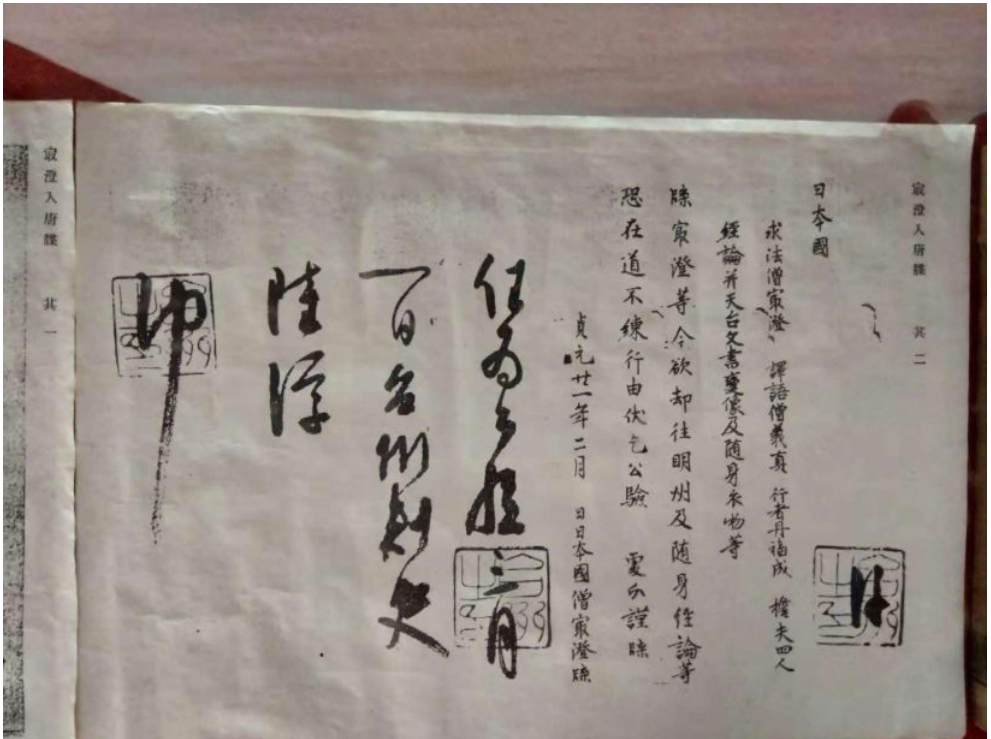 最澄入唐牒 其二
日本國
求法僧最澄 譯語僧義真 行者丹福成 擔夫四人
經論并天台文書變像及随身衣物等
牒最澄等今欲却往明州及随身經論等
恐在道不練行由伏乞公驗 處分謹牒
貞元廿一年二月 日日本國僧最澄牒
任為公驗三月
一日台州刺史
陸淳
印
最澄入唐牒 其一